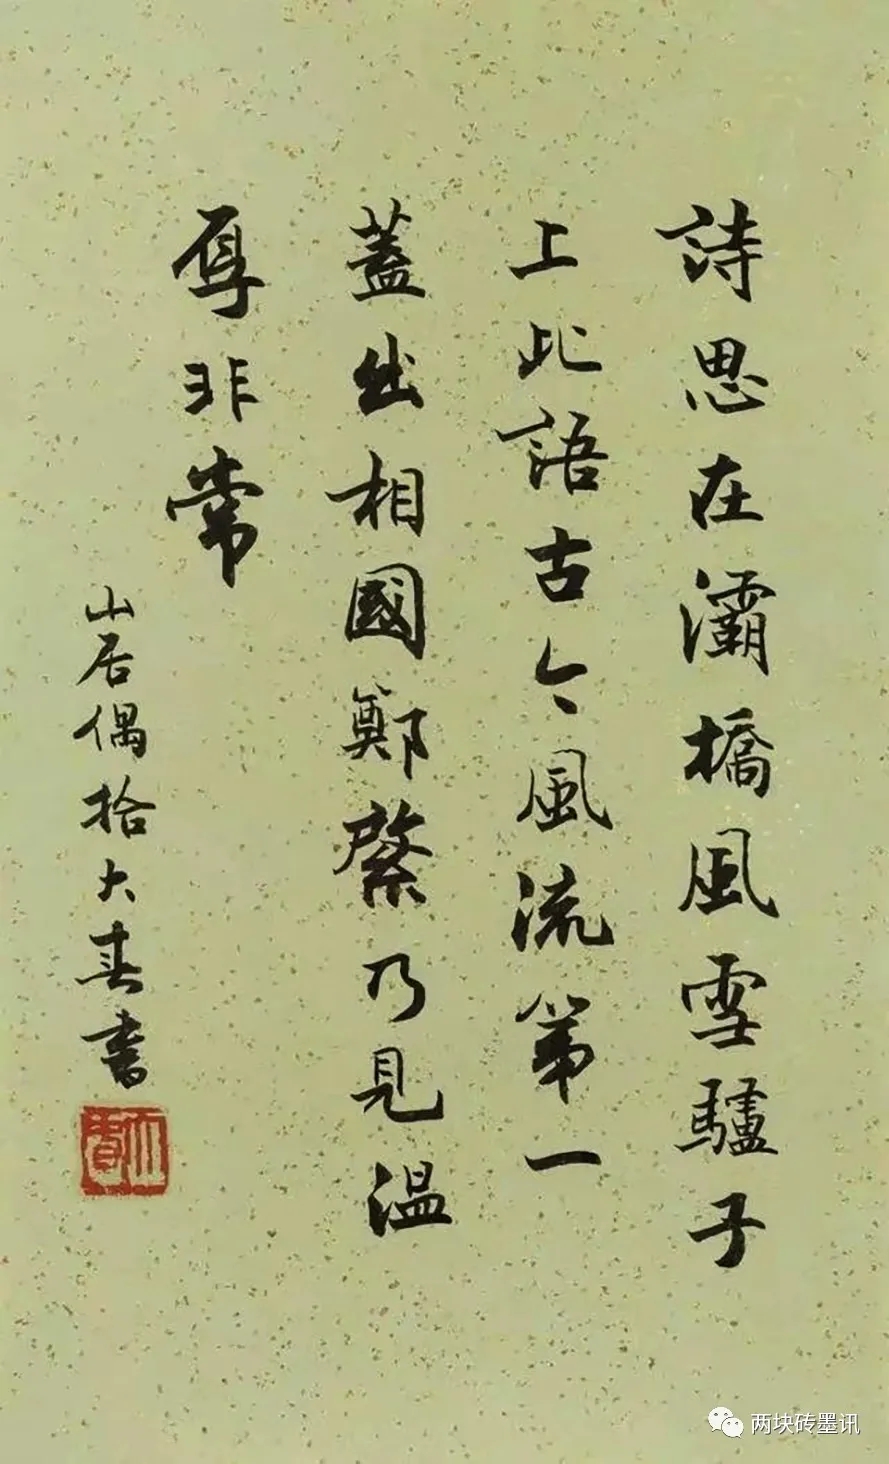 詩思在灞橋風雪驢子
上此語古今風流第一
蓋出相國鄭綮乃見温
厚非常
山居偶拾大春書
大春
两块砖墨讯